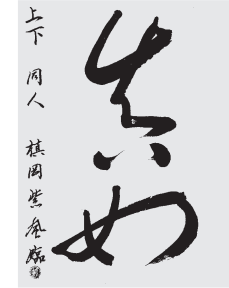 真如
上下 同人 棋岡紫風臨